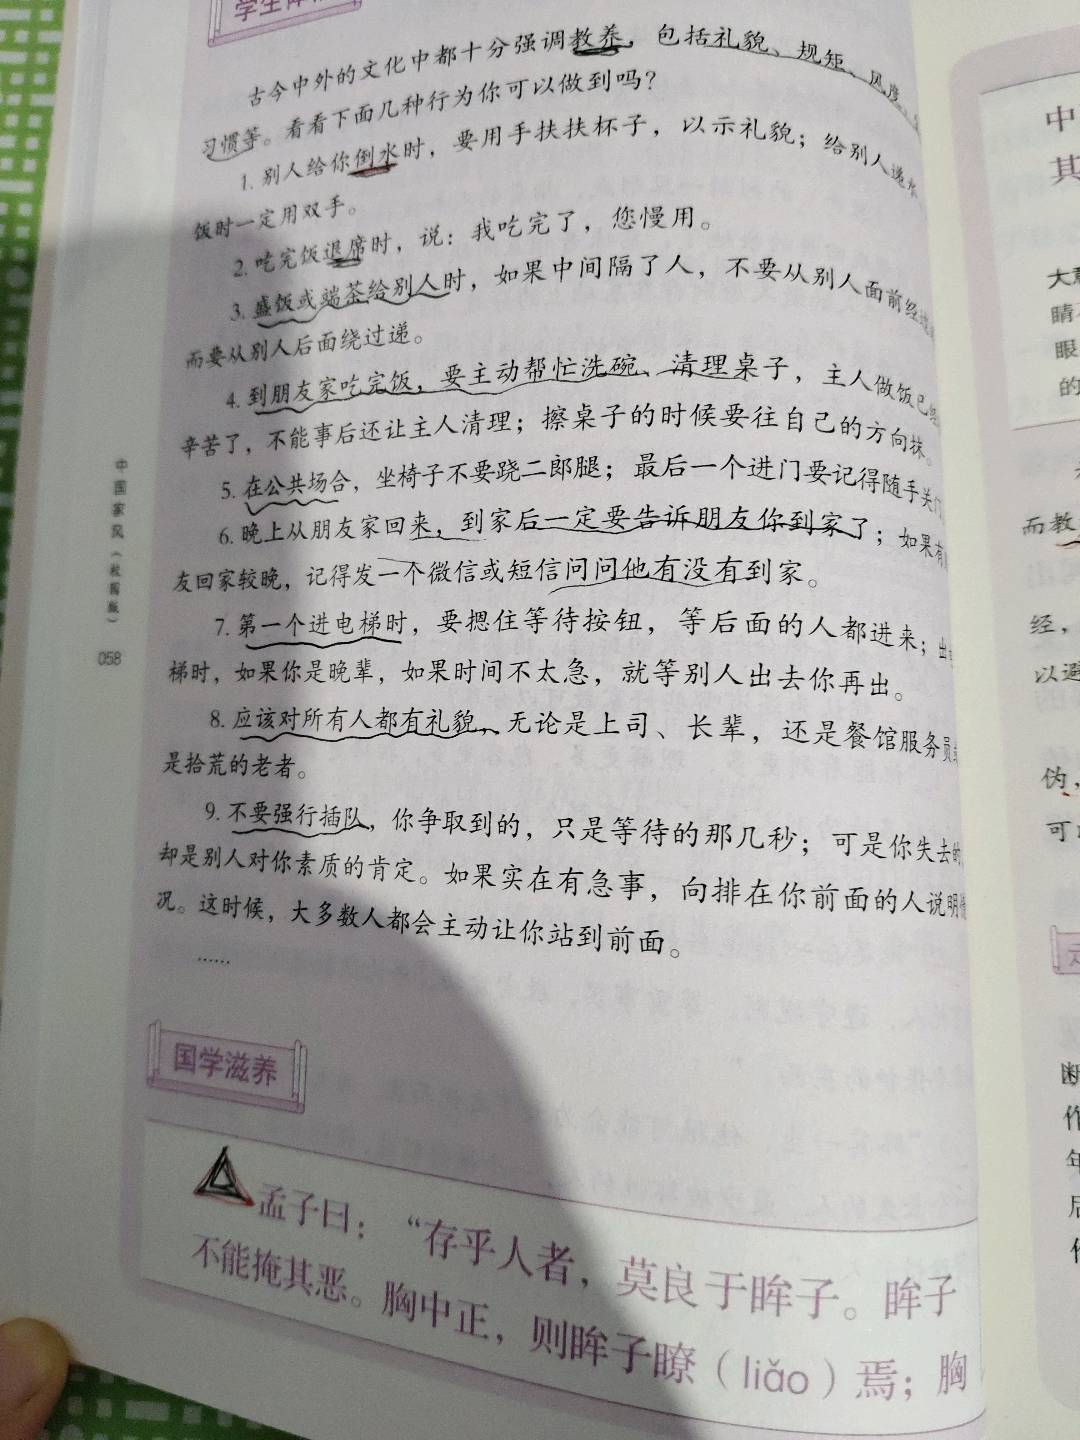 学生体
古今中外的文化中都十分强调教养，包括礼貌、规矩、风度、
习惯等。看看下面几种行为你可以做到吗？
1. 别人给你倒水时，要用手扶扶杯子，以示礼貌；给别人递水
饭时一定用双手。
2. 吃完饭退席时，说：我吃完了，您慢用。
3. 盛饭或端茶给别人时，如果中间隔了人，不要从别人面前经
而要从别人后面绕过递。
4. 到朋友家吃完饭，要主动帮忙洗碗、清理桌子，主人做饭已经
辛苦了，不能事后还让主人清理；擦桌子的时候要往自己的方向抹。
5. 在公共场合，坐椅子不要跷二郎腿；最后一个进门要记得随手关门
6. 晚上从朋友家回来，到家后一定要告诉朋友你到家了；如果有
友回家较晚，记得发一个微信或短信问问他有没有到家。
7. 第一个进电梯时，要摁住等待按钮，等后面的人都进来；出
梯时，如果你是晚辈，如果时间不太急，就等别人出去你再出。
8. 应该对所有人都有礼貌，无论是上司、长辈，还是餐馆服务员
是拾荒的老者。
9. 不要强行插队，你争取到的，只是等待的那几秒；可是你失去的
却是别人对你素质的肯定。如果实在有急事，向排在你前面的人说明情
况。这时候，大多数人都会主动让你站到前面。
……
国学滋养
孟子曰：“存乎人者，莫良于眸子。眸子
不能掩其恶。胸中正，则眸子瞭（liǎo）焉；胸
中国家风（校园版）
058
中
其
大
睛
眼
的
而教
经，
以避
伪，
可
断
作
年
后